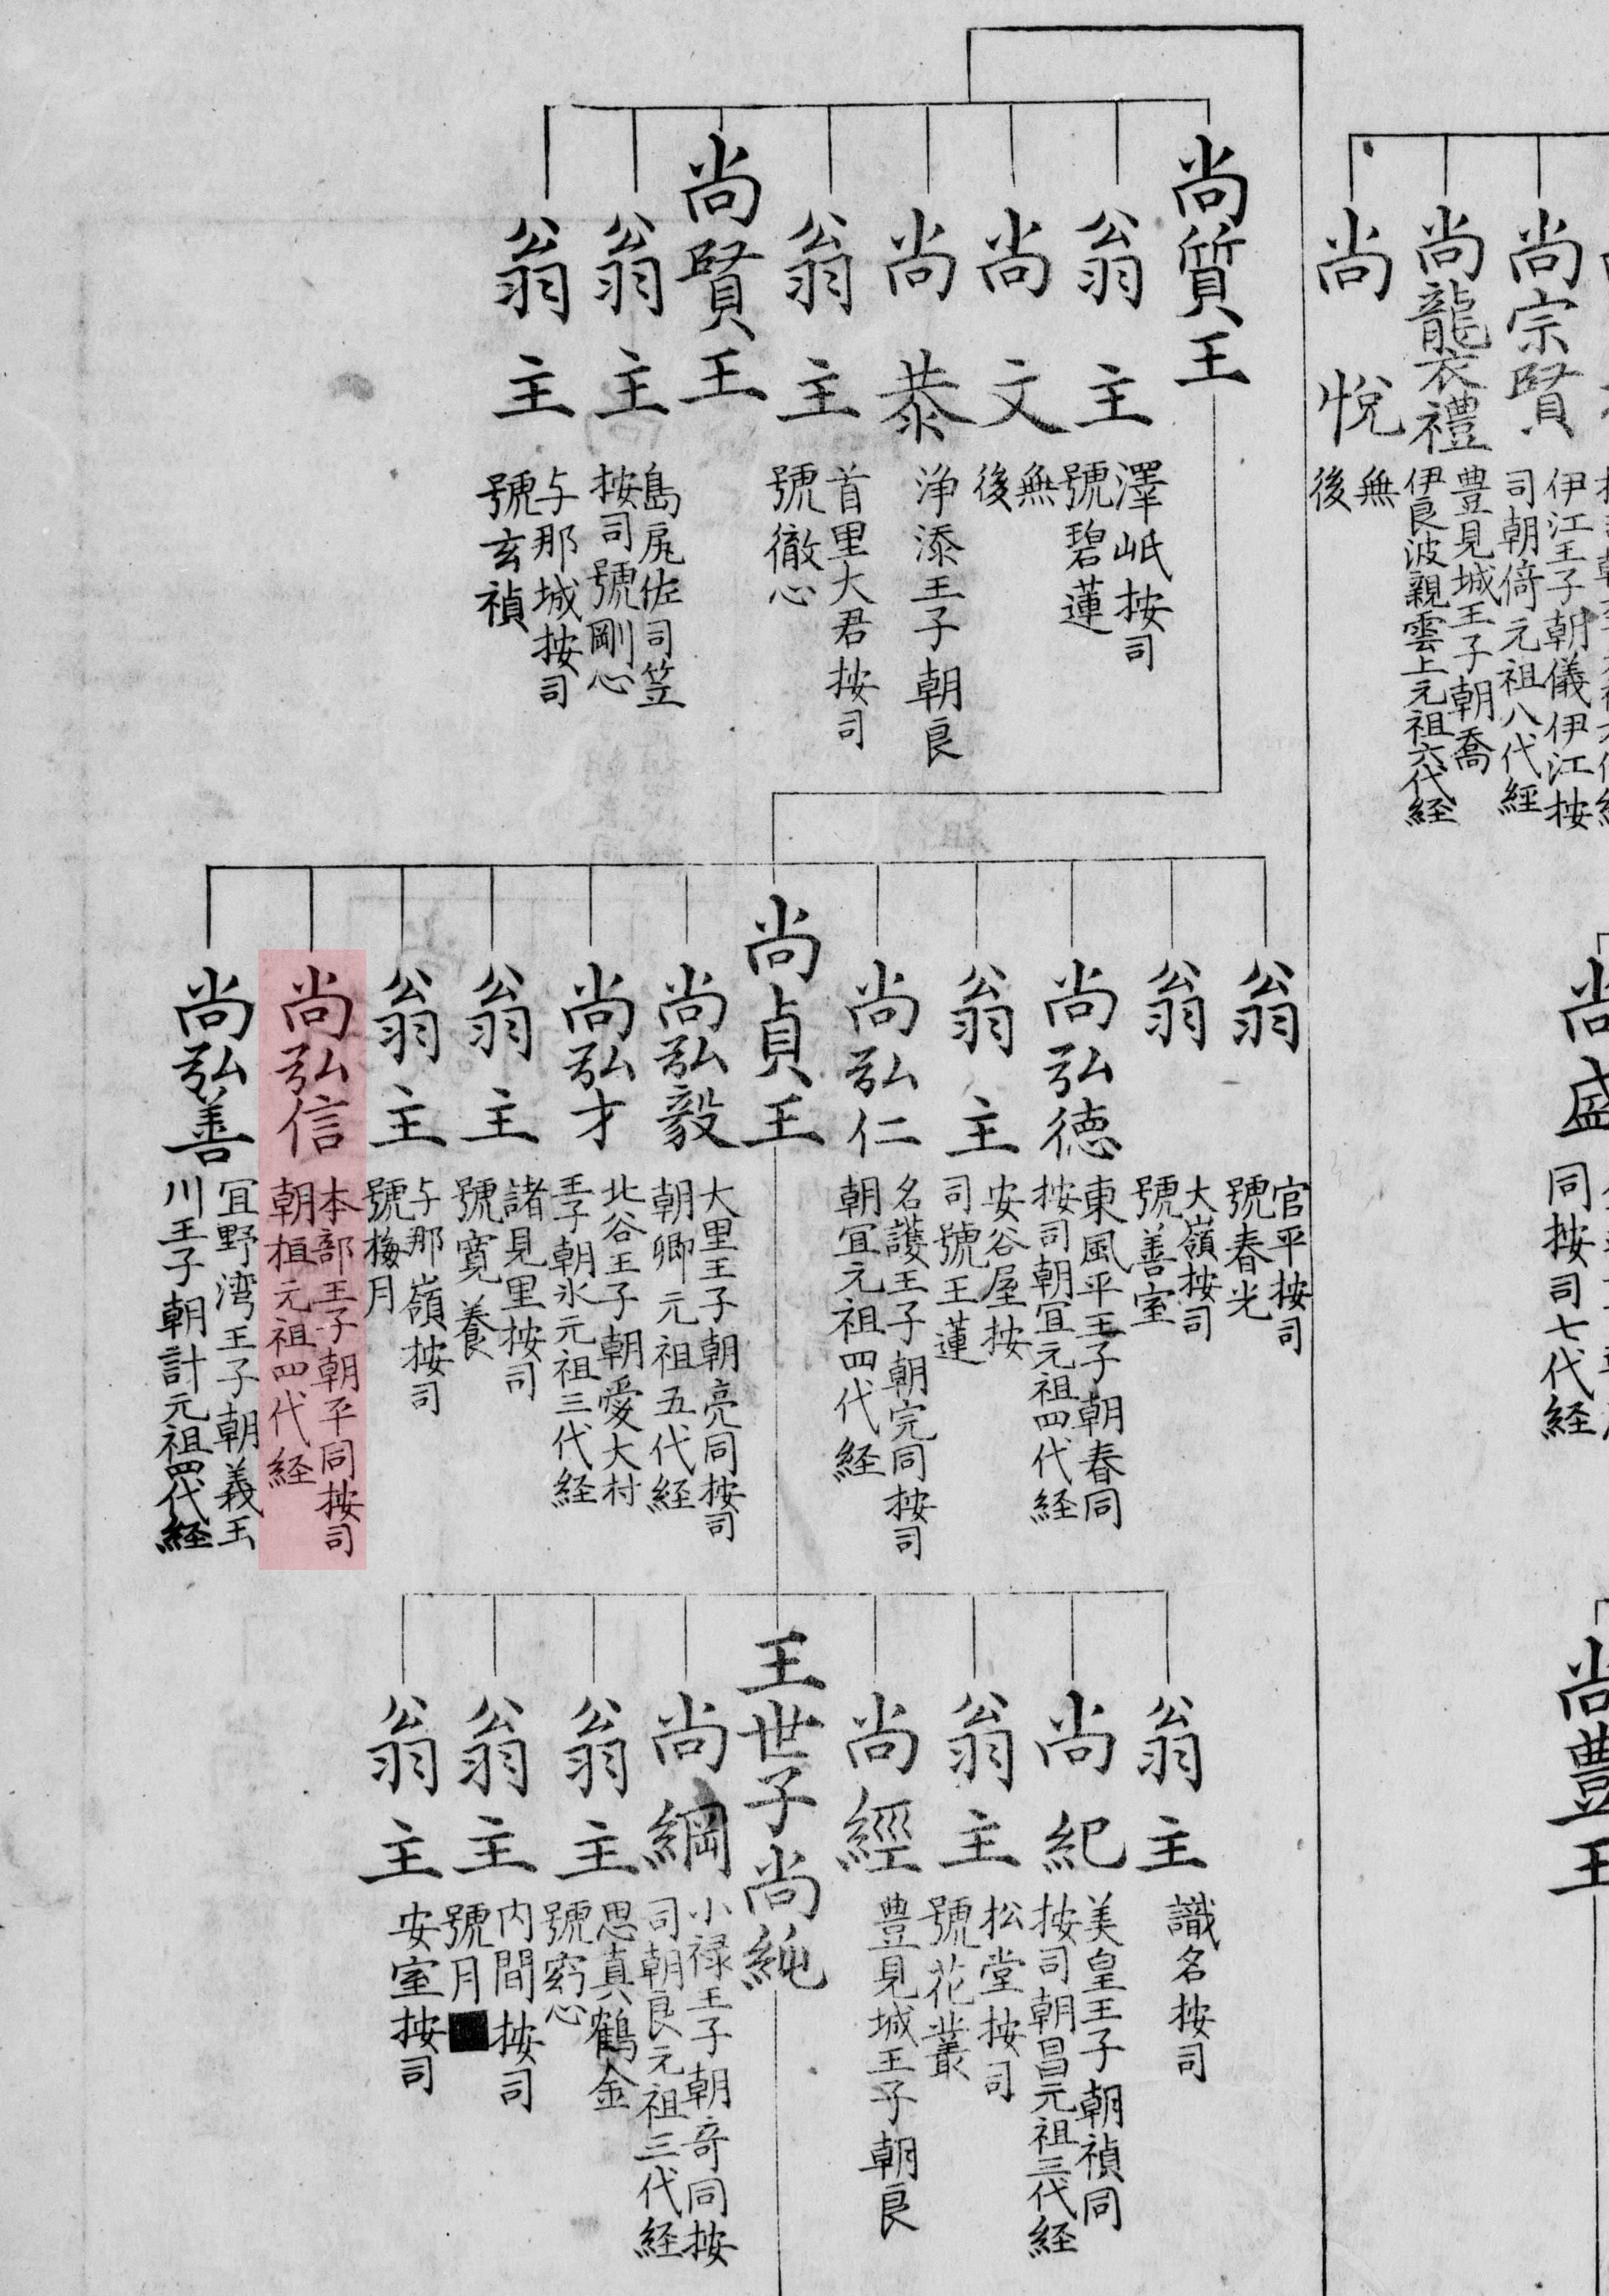 尚質王
翁主
澤岻按司
號碧蓮
尚文
無
後
尚恭
浄添王子朝良
翁主
首里大君按司
號徹心
尚賢王
翁主
島尻佐司笠
按司號剛心
翁主
与那城按司
號玄禎
尚宗賢
伊江王子朝儀伊江按
司朝倚元祖八代經
尚龍衣禮
豊見城王子朝喬
伊良波親雲上元祖六代経
尚悦
無
後
翁
官平按司
號春光
翁
大嶺按司
號善室
尚弘徳
東風平王子朝春同
按司朝宜元祖四代経
翁主
安谷屋按
司號王蓮
尚弘仁
名護王子朝完同按司
朝宜元祖四代経
尚貞王
尚弘毅
大里王子朝亮同按司
朝卿元祖五代経
尚弘才
北谷王子朝愛大村
王子朝氷元祖三代経
翁主
諸見里按司
號寛養
翁主
与那嶺按司
號梅月
尚弘信
本部王子朝平同按司
朝恒元祖四代経
尚弘善
冝野湾王子朝義玉
川王子朝計元祖四代経
尚盛
同按司七代経
翁主
識名按司
尚紀
美皇王子朝禎同
按司朝昌元祖三代経
翁主
松堂按司
號花叢
尚經
豊見城王子朝良
王世子尚純
尚綱
小禄王子朝奇同按
司朝良元祖三代経
翁主
思真鶴金
號窮心
翁主
内間按司
號月■
翁主
安室按司
尚豊王